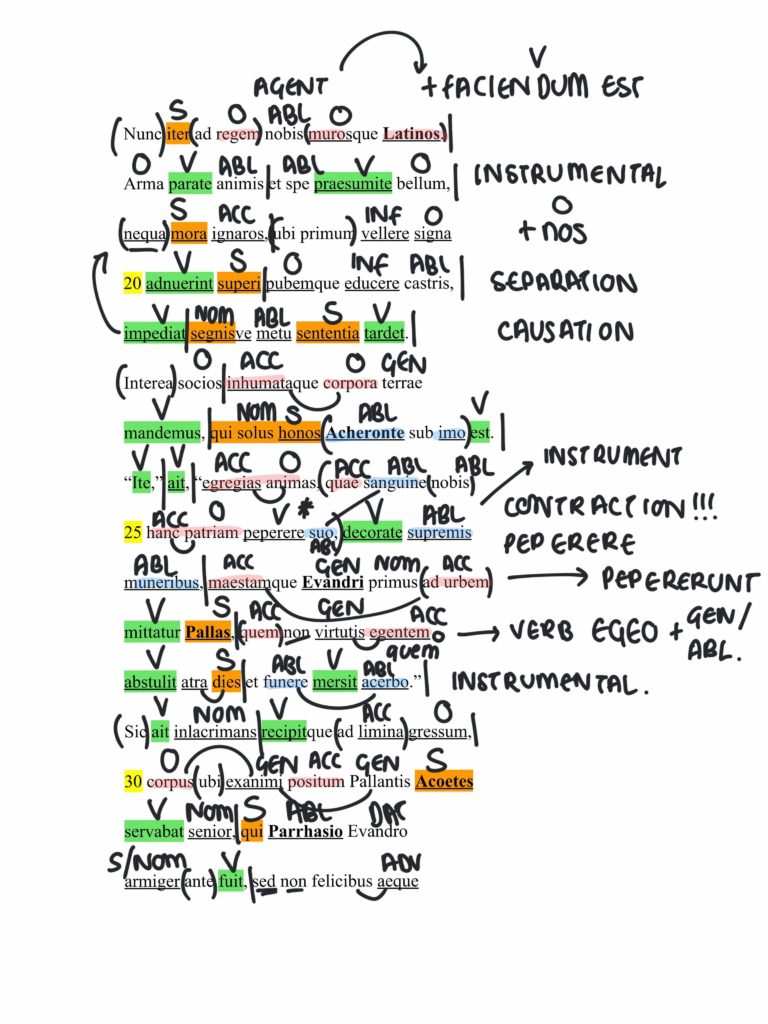 AGENT
V
+ FACIENDUM EST
S O ABL O
(Nunc) iter (ad regem) nobis (murosque Latinos,)|
O V ABL ABL V O
Arma parate animis | et spe praesumite bellum, | INSTRUMENTAL
S ACC INF O O
(nequa) mora ignaros, (ubi primum) vellere signa + NOS
V S O INF ABL
20 adnuerint superi | pubemque educere castris, | SEPARATION
V NOM ABL S V
impediat | segnisve metu sententia tardet. | CAUSATION
O ACC O GEN
(Interea) socios | inhumataque corpora terrae
V NOM S ABL V
mandemus, | qui solus honos (Acheronte sub imo) est. |
V V ACC O ACC ABL ABL INSTRUMENT
“Ite,” | ait, | “egregias animas, (quae sanguine (nobis)
ACC O V * V ABL CONTRACTION!!!
25 hanc patriam peperere suo,) decorate supremis PEPERERE
ABL ACC ABL GEN NOM ACC
muneribus, | maestamque Evandri primus (ad urbem) PEPERERUNT
V S ACC GEN ACC
mittatur Pallas, | (quem) non virtutis egentem VERB EGEO + GEN/ABL.
V S ABL V ABL quem
abstulit atra dies | et funere mersit acerbo.” | INSTRUMENTAL.
V NOM V ACC O
(Sic) ait inlacrimans | recipitque (ad limina) gressum, |
O GEN ACC GEN S
30 corpus (ubi) exanimi positum Pallantis Acoetes
V NOM S ABL DAT
servabat senior, | qui Parrhasio Evandro
S/NOM V ADV
armiger (ante) fuit, | sed non felicibus aeque